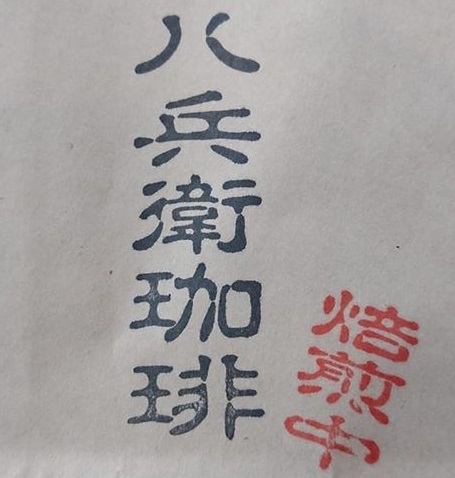 八兵衛珈琲
焙煎中